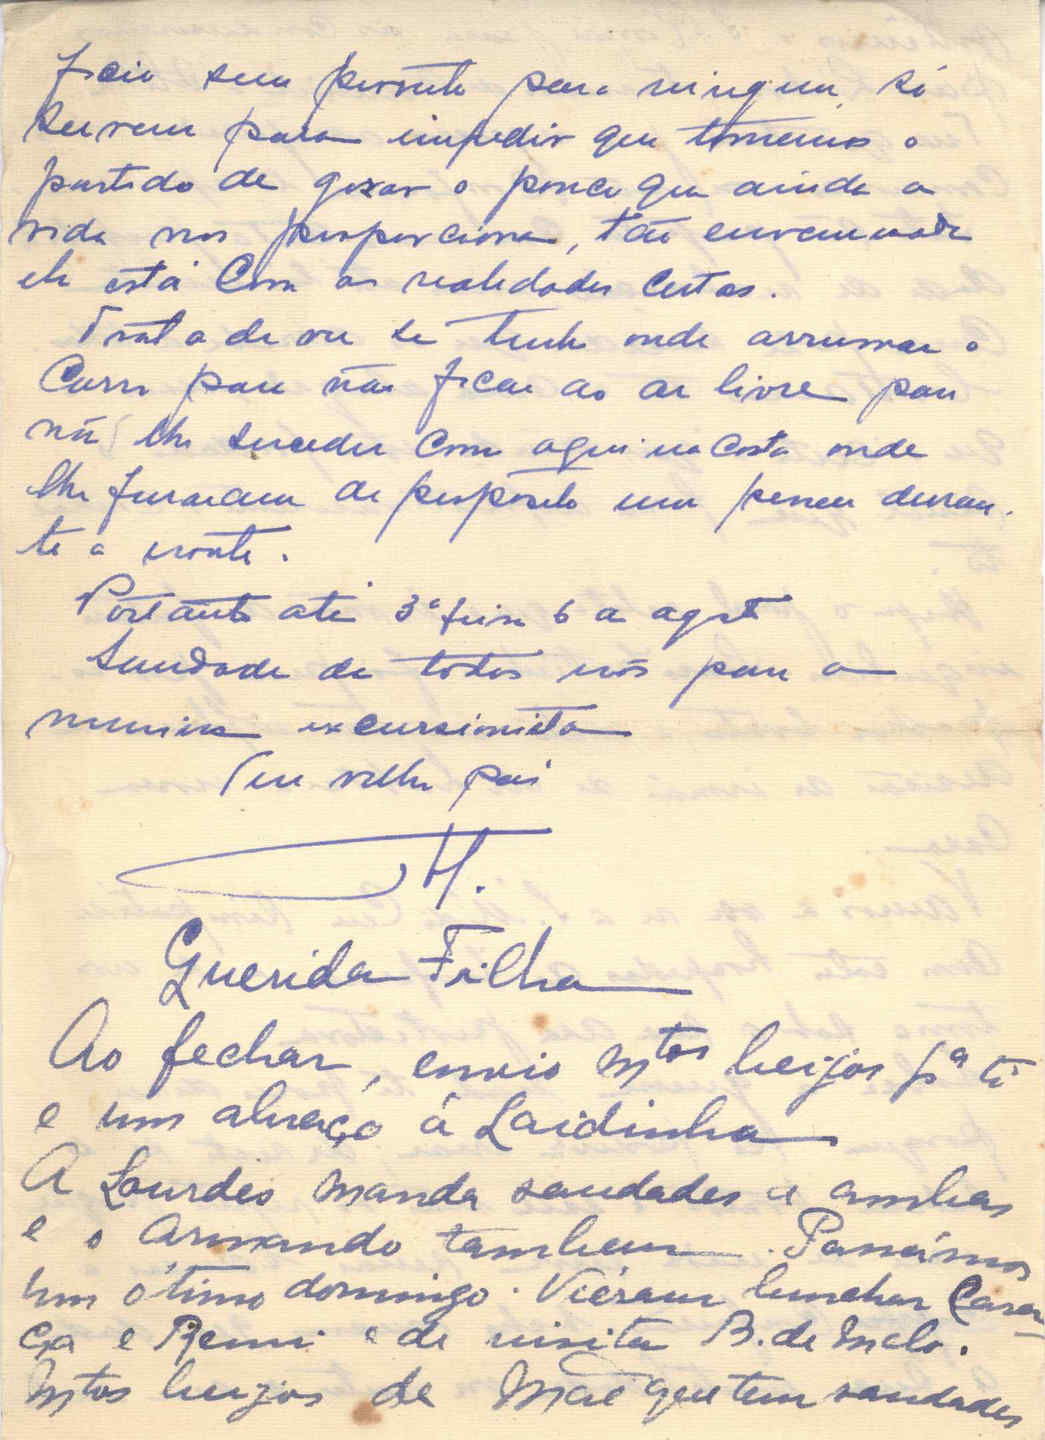 ficio sem proveito para ninguem, só
servem para impedir que tomemos o
partido de gozar o pouco que ainda a
vida nos proporciona, tão envenenada
ela está com as realidades certas.
Trata de ver se tens onde arrumar o
carro para não ficar ao ar livre para
não lhe suceder como aqui na Costa onde
lhe furaram de proposito um pneu duran-
te a noute.
Portanto até 3ª feira 6 de agosto
Saudade de todos nós para a
menina excursionista
Teu velho pai
H.
Querida Filha
Ao fechar, envio mtos beijos pª ti
e um abraço á Laidinha
A Lourdes manda saudades a ambas
e o Armando tambem. Passámos
um ótimo domingo. Viéram lunchar
e Remi e de visita B. de Melo.
Mtos beijos de Mãe que tem saudades